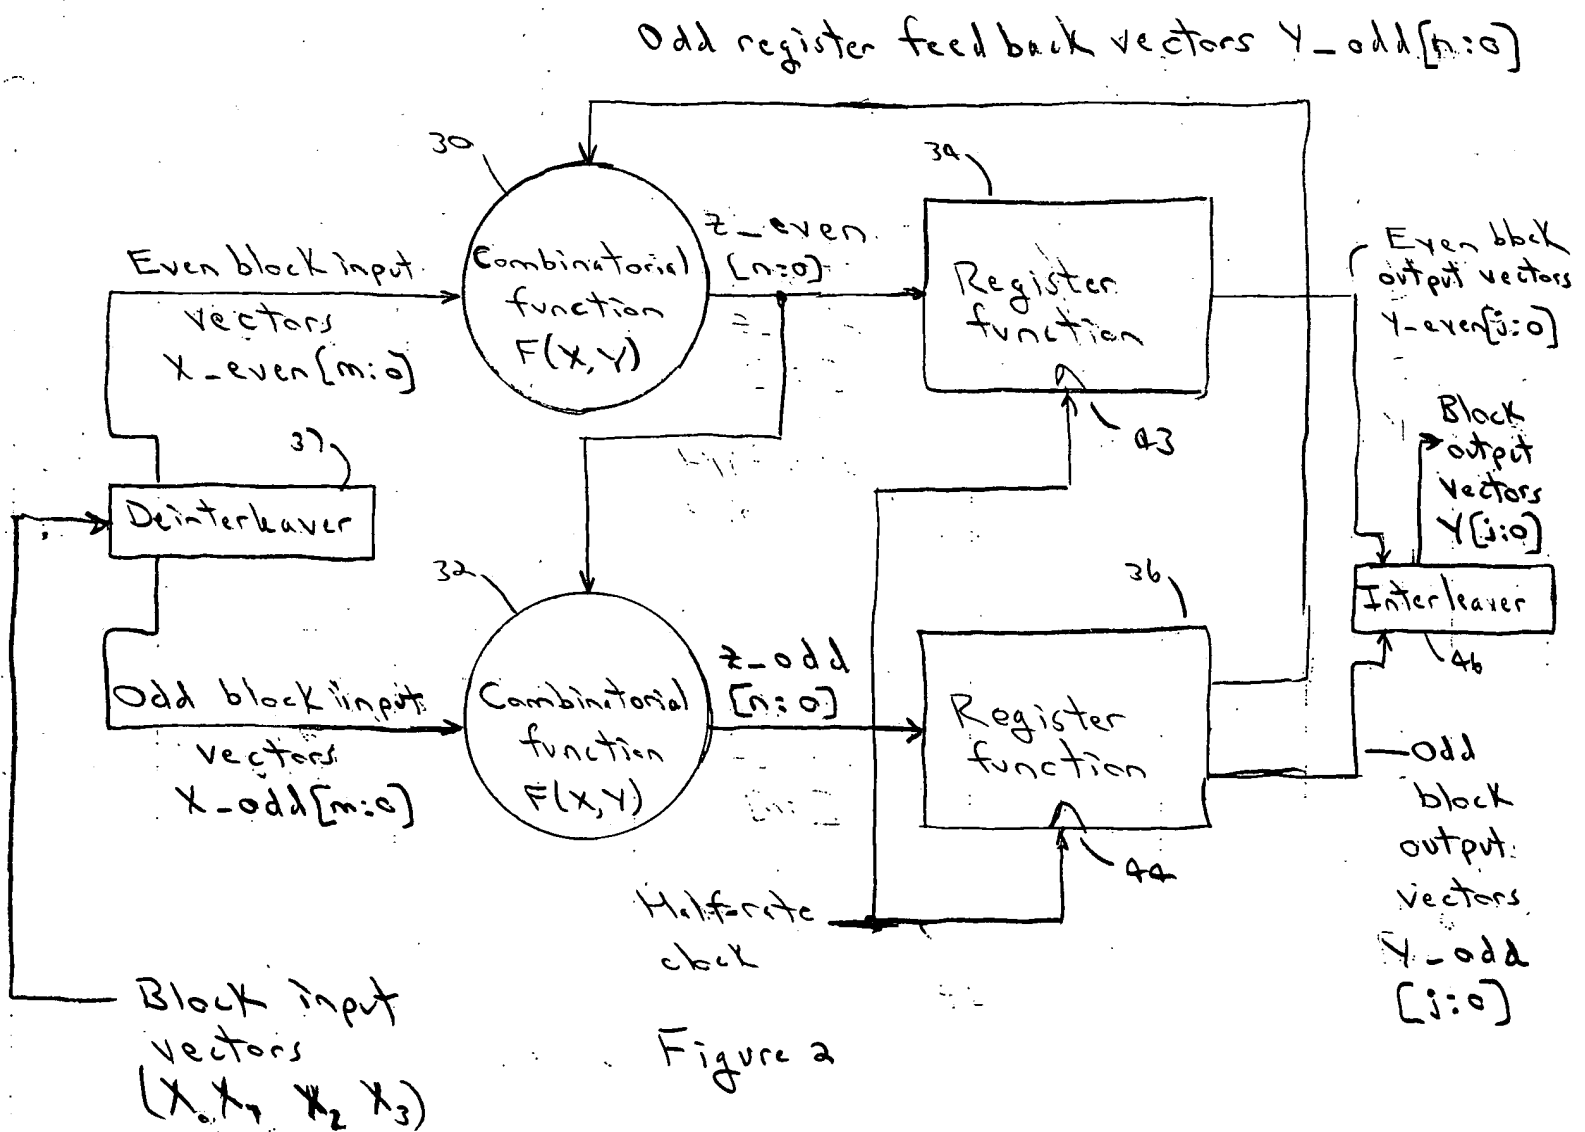 Odd register feedback vectors Y_odd[n:0]
30
34
Z_even
[n:0]
Even block input
vectors
X_even[m:0]
Combinatorial
function
F(X,Y)
Register
function
43
Even block
output vectors
Y_even[j:0]
Block
output
vectors
Y[j:0]
37
Deinterleaver
32
36
Interleaver
46
Z_odd
[n:0]
Odd block input
vectors
X_odd[m:0]
Combinatorial
function
F(X,Y)
Register
function
44
Odd
block
output
vectors
Y_odd
[j:0]
Half-rate
clock
Block input
vectors
(X₀ X₁ X₂ X₃)
Figure 2